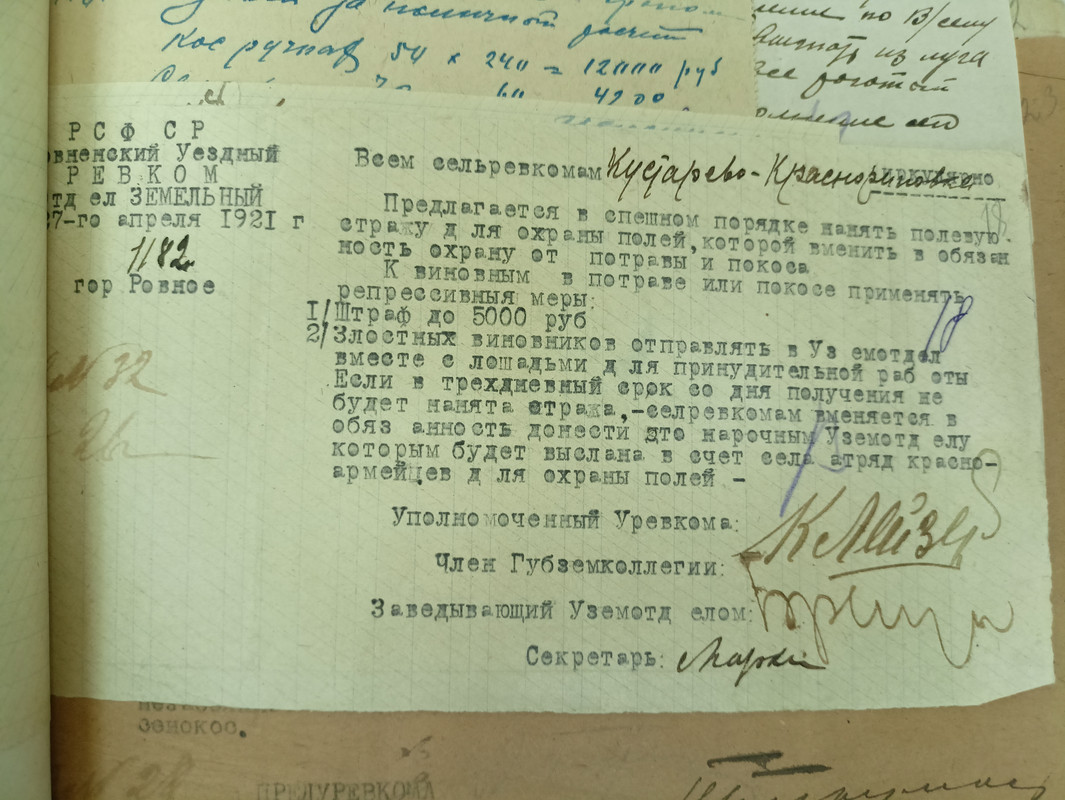 за наличной расчет
Кос ручнаф 54 х 240 = 12000 руб
60 4200
по В/селу
из луга
РСФСР
овненский Уездный
РЕВКОМ
тдел ЗЕМЕЛЬНЫЙ
27-го апреля 1921 г
1182
гор Ровное
Всем сельревкомам Кустарево-Краснорыновка
Предлагается в спешном порядке нанять полевую
стражу для охраны полей,которой вменить в обязан
ность охрану от потравы и покоса
К виновным в потраве или покосе применять
репрессивныя меры:
1/Штраф до 5000 руб
2/Злостных виновников отправлять в Уземотдел
вместе с лошадьми для принудительной работы
Если в трехдневный срок со дня получения не
будет нанята стража,-селревкомам вменяется в
обязанность донести это нарочным Уземотделу
которым будет выслана в счет села атряд красно-
армейцев для охраны полей -
18
18
№ 32
Уполномоченный Уревкома:
Член Губземколлегии:
Заведывающий Уземотделом:
Секретарь:
Земское.
№ 28
ПРЕДУРЕВКОМА